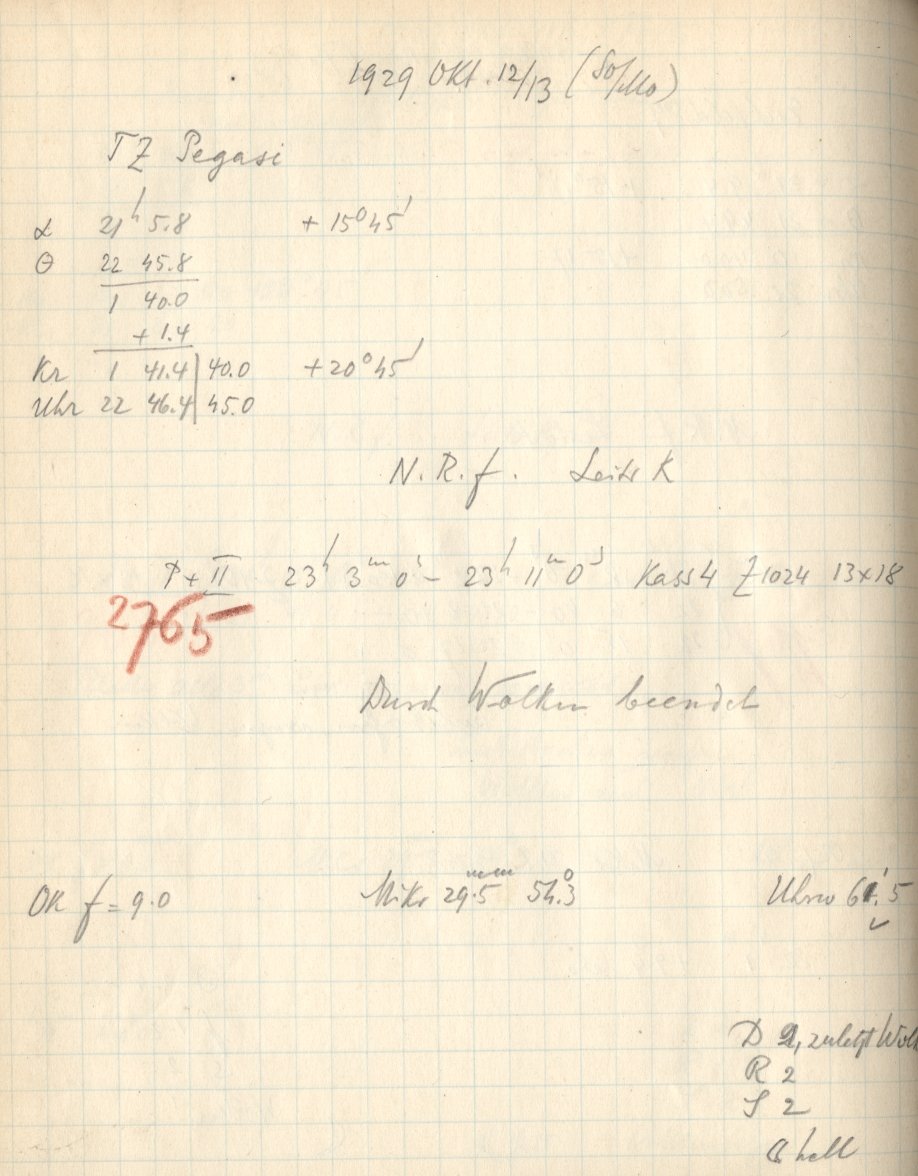 1929 Okt. 12/13 (So/Mo)
TZ Pegasi
α 21ʰ 5.8 + 15° 45'
Θ 22 45.8
1 40.0
+ 1.4
Kr 1 41.4 | 40.0 + 20° 45'
Uhr 22 46.4 | 45.0
N. R. f. Leitr K
P + II 23ʰ 3ᵐ 0ˢ – 23ʰ 11ᵐ 0ˢ Kass 4 Z 1024 13x18
2765
Durch Wolken beendet
OK f = 9.0 Mikr 29.5ᵐᵐ 54.3° Uhrw 61.5
D 2, zuletzt Wolk
R 2
S 2
hell